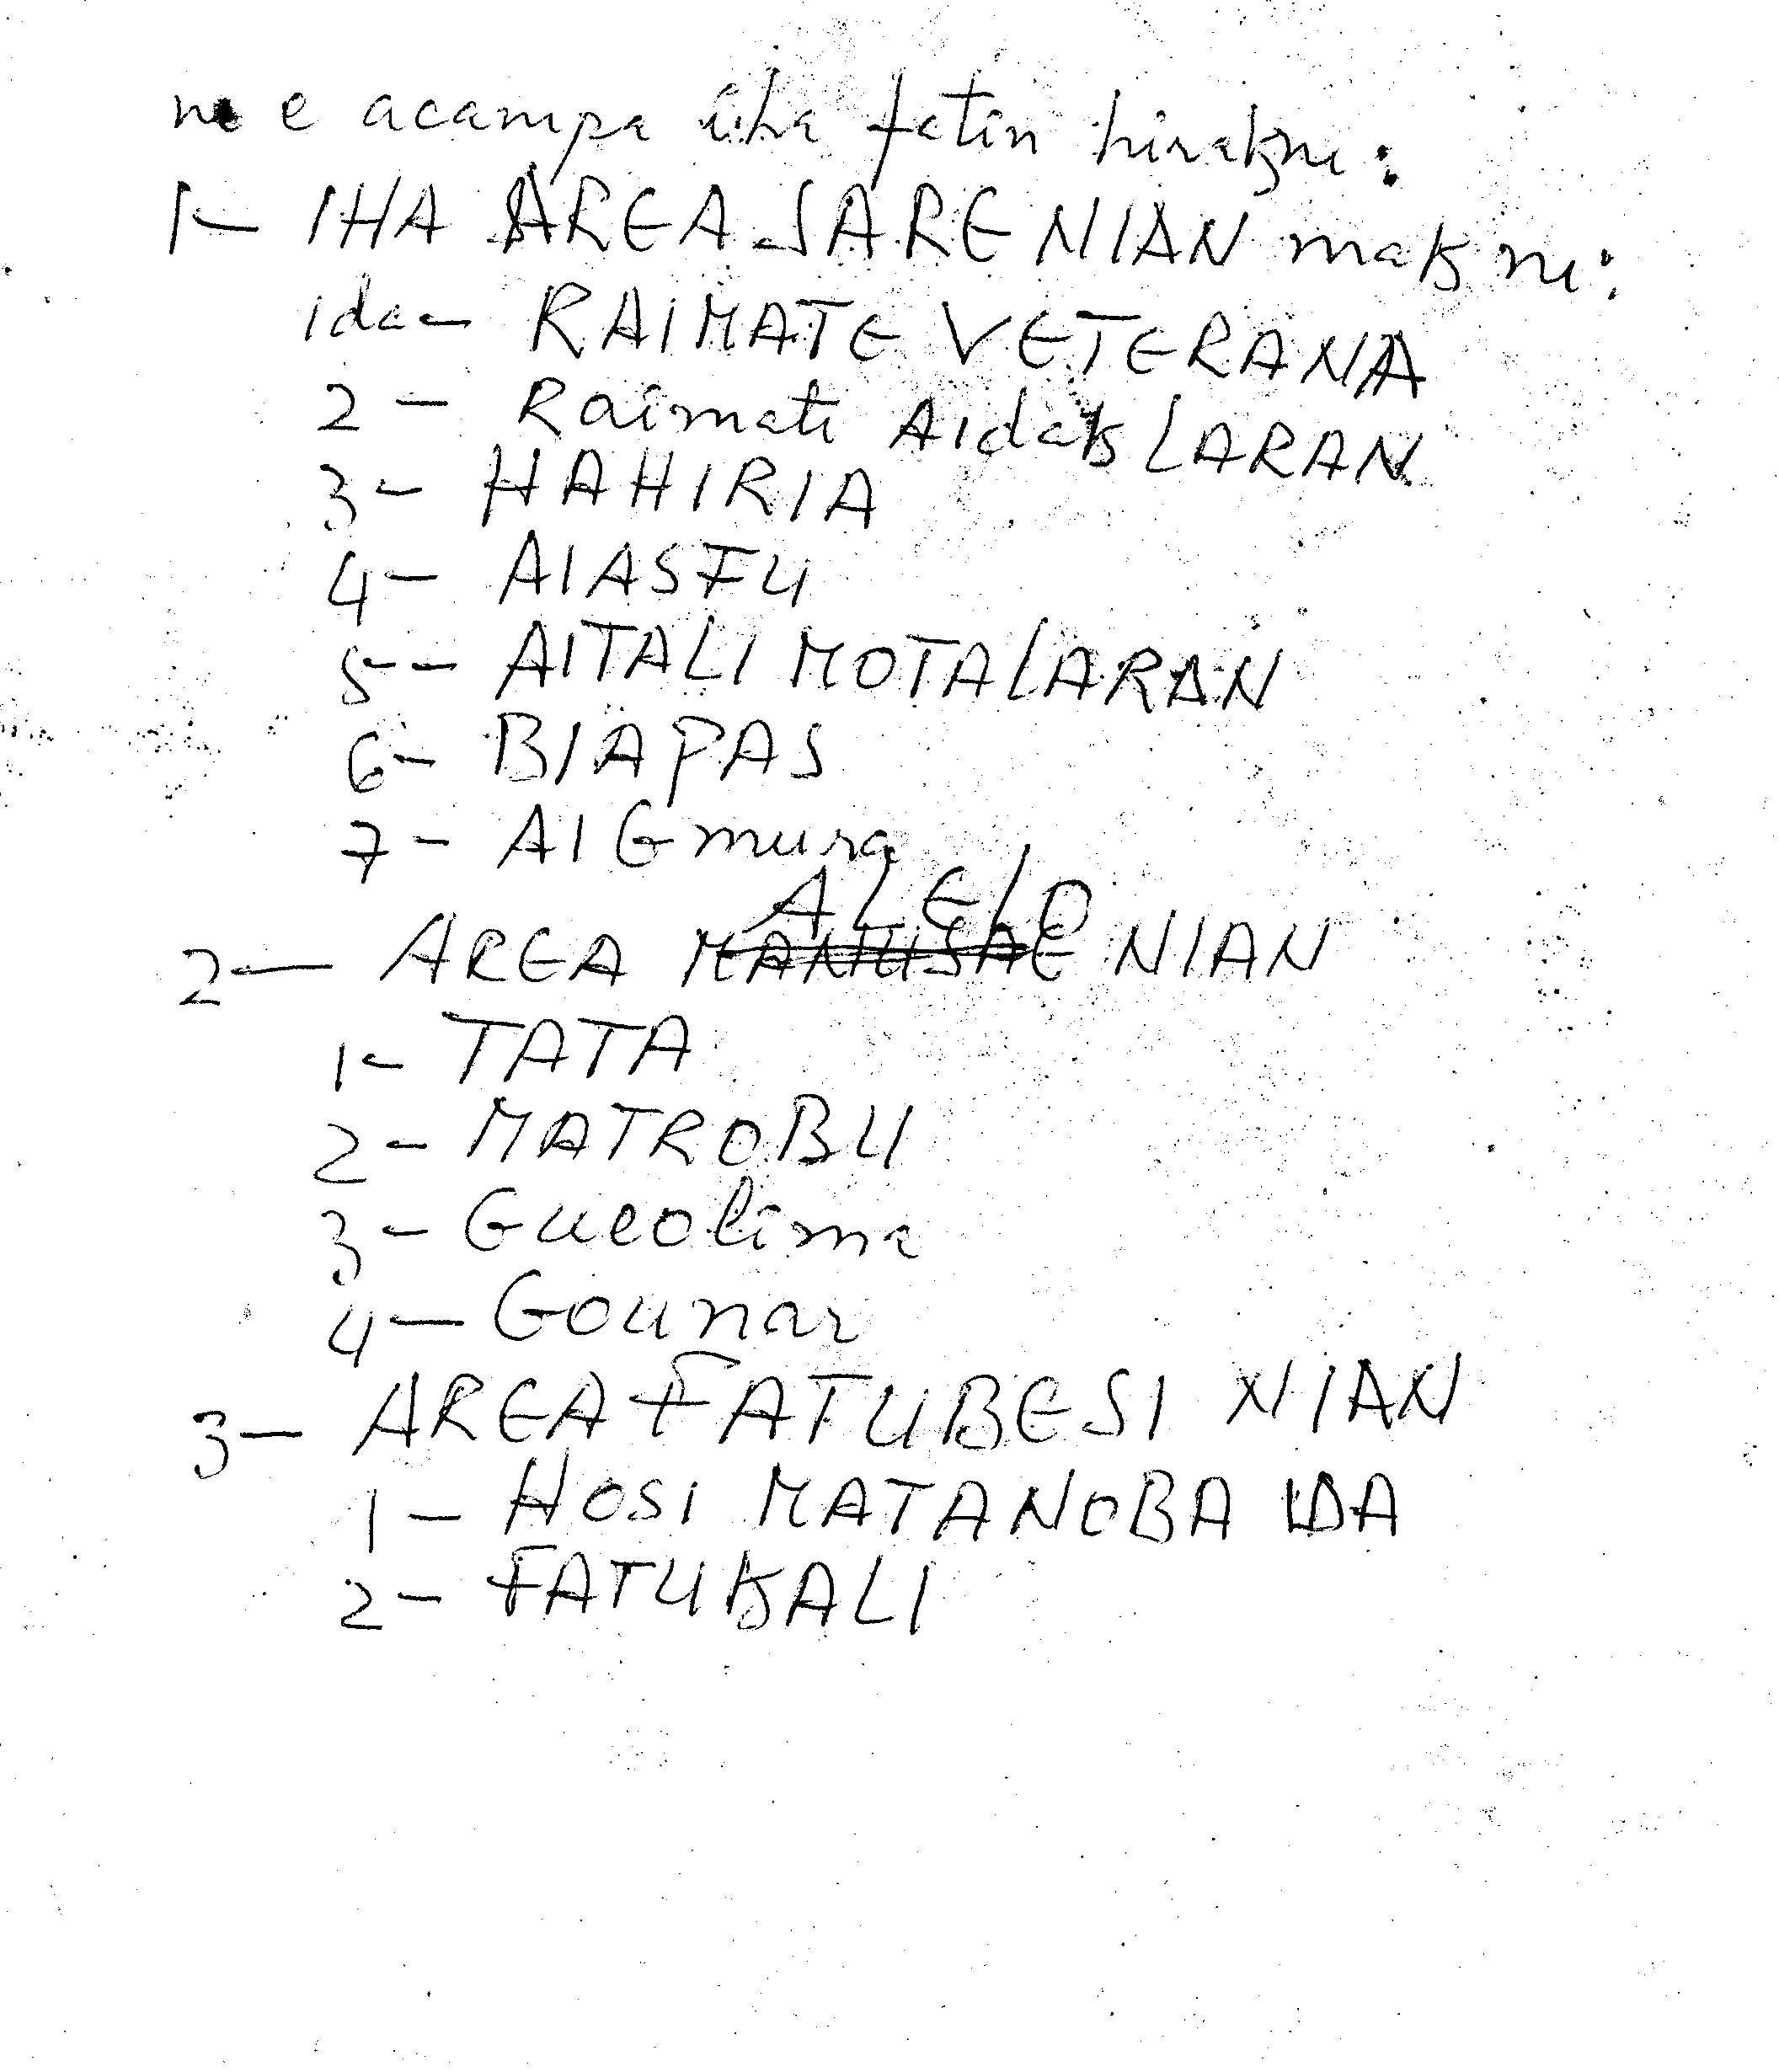 ne e acampa iha fatin hirakne:
1- IHA AREA SARE NIAN mak ne:
ida- RAIMATE VETERANA
2- Raimate Aidak LARAN
3- HAHIRIA
4- AIASFU
5-- AITALI MOTALARAN
6- BIAPAS
7- AIGmura
ALELO
2- AREA MANUSAE NIAN
1- TATA
2- MATROBU
3- Gueolima
4- Gounar
3- AREA FATUBESI NIAN
1- HOSI MATANOBA IDA
2- FATUKALI